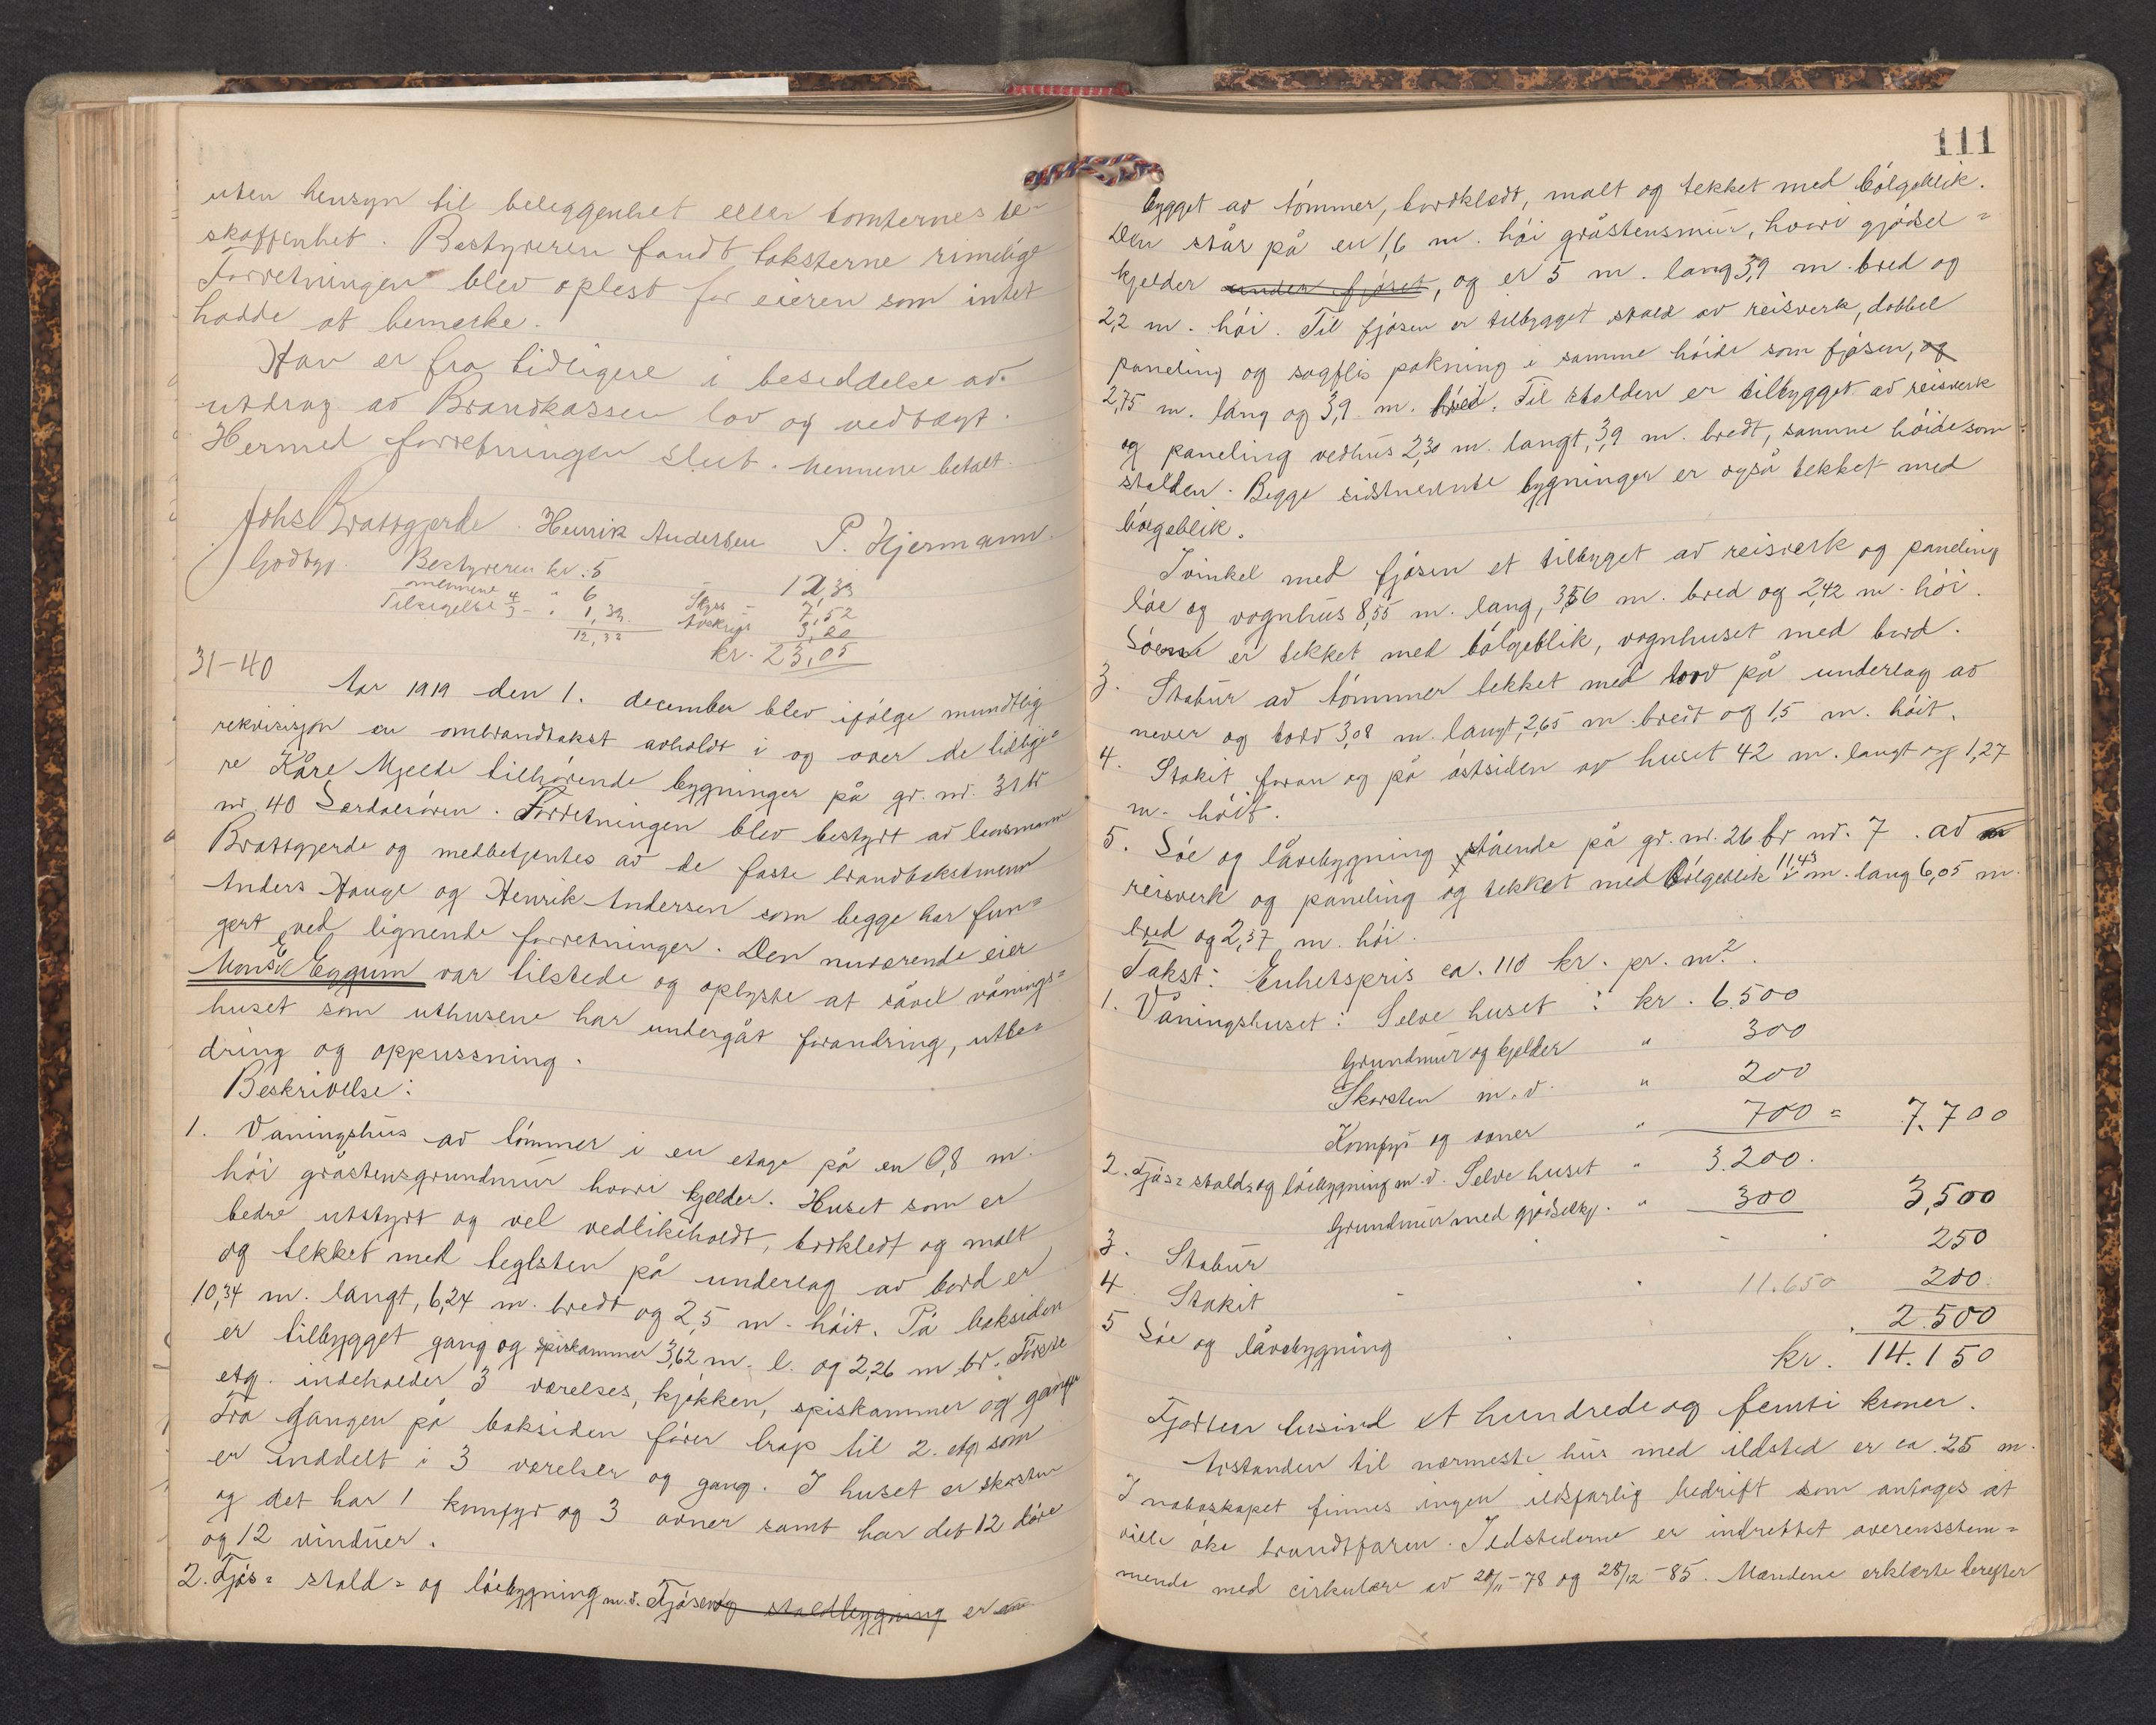 uten hensyn til beleggenhet eller tomternes be-
skaffenhet. Bestyreren fandt taksterne rimelige
Forretningen blev oplest for eieren som intet
hadde at bemerke.
Han er fra tidligere i besiddelse av
utdrag av Brandkassen lov og vedtægt.
Hermed forretningen slut. Mennene betalt.
Johs Brattgjerde. Henrik Andersen P. Hjermann.
Godtgj. Bestyreren kr. 5
mennene " 6
Tilsigelse 4/3 - " 1,33
12,33
12,33
Skyss - 7,52
Avskrift 3,20
kr. 23,05
31-40
Aar 1919 den 1. december blev ifølge mundtlig
rekvisisjon en ombrandtakst avholdt i og over de tidlige=
re Kåre Mjelde tilhørende bygninger på gr. nr. 31 br
nr 40 Lærdalsøren. Forretningen blev bestyrt av lensmann
Brattgjerde og medbetjentes av de faste brandtakstmenn
Anders Hauge og Henrik Andersen som begge har fun=
gert ved lignende forretninger. Den nuværende eier
Mons E Eggum var tilstede og oplyste at såvel vånings=
huset som uthusene har undergåt forandring, utbe=
dring og oppussning.
Beskrivelse:
1. Våningshus av tømmer i en etage på en 0,8 m.
høi gråstensgrundmur hvori kjelder. Huset som er
bedre utstyrt og vel vedlikeholdt, bordkledt og malt
og tekket med teglsten på underlag av bord er
10,34 m. langt, 6,24 m. bredt og 2,5 m. høit. På baksiden
er tilbygget gang og spiskammer 3,62 m. l. og 2,26 m br. Første
etg. indeholder 3 værelses, kjøkken, spiskammer og ganger
Fra gangen på baksiden fører trap til 2. etg som
er inddelt i 3 værelser og gang. I huset er skorsten
og det har 1 komfyr og 3 ovner samt har det 12 døre
og 12 vinduer.
2. Fjøs= stald= og løebygning m.v. Fjøsen og staldbygning er en
111
bygget av tømmer, bordklædt, malt og tekket med bølgeblik.
Den står på en 1,6 m. høi gråstensmur, hvori gjødsel=
kjelder under fjøset, og er 5 m. lang 3,9 m. bred og
2,2 m. høi. Til fjøsen er tilbygget stald av reisverk, dobbel
paneling og sagflis pakning i samme høide som fjøsen, og
2,75 m. lang og 3,9 m. bred. Til stalden er tilbygget av reisverk
og paneling vedhus 2,30 m. langt, 3,9 m. bredt, samme høide som
stalden. Begge sidstnevnte bygninger er også tekket med
bølgeblik.
I vinkel med fjøsen et tilbygget av reisverk og paneling
løe og vognhus 8,55 m. lang, 3,56 m. bred og 2,42 m. høi.
Løene er tekket med bølgeblik, vognhuset med bord.
3. Stabur av tømmer tekket med torv på underlag av
never og bord 3,08 m. langt, 2,65 m. bredt og 1,5 m. høit.
4. Stakit foran og på østsiden av huset 42 m. langt og 1,27
m. høit.
5. Løe og låvebygning stående på gr. nr. 26 br nr. 7. av
reisverk og paneling og tekket med bølgeblik 11,43 m. lang 6,05 m.
bred og 2,37 m. høi.
Takst: Enhetspris ca. 110 kr. pr. m².
1. Våningshuset: Selve huset: kr. 6.500
Grundmur og kjelder " 300
Skorsten m.v. " 200
Komfyr og ovner " 700 = 7.700
2. Fjøs= stald= og løebygning m.v. Selve huset " 3.200.
Grundmur med gjødselkj. " 300 3,500
3. Stabur 250
4 Stakit 11.650 200.
5 Løe og låvebygning 2.500
kr. 14.150
Fjorten tusind et hundrede og femti kroner.
Avstanden til nærmeste hus med ildsted er ca. 25 m.
I naboskapet finnes ingen ildsfarlig bedrift som antages at
ville øke brandfaren. Ildstederne er indrettet overensstem=
mende med cirkulære av 20/11-78 og 28/12-85. Mændene erklærte derefter